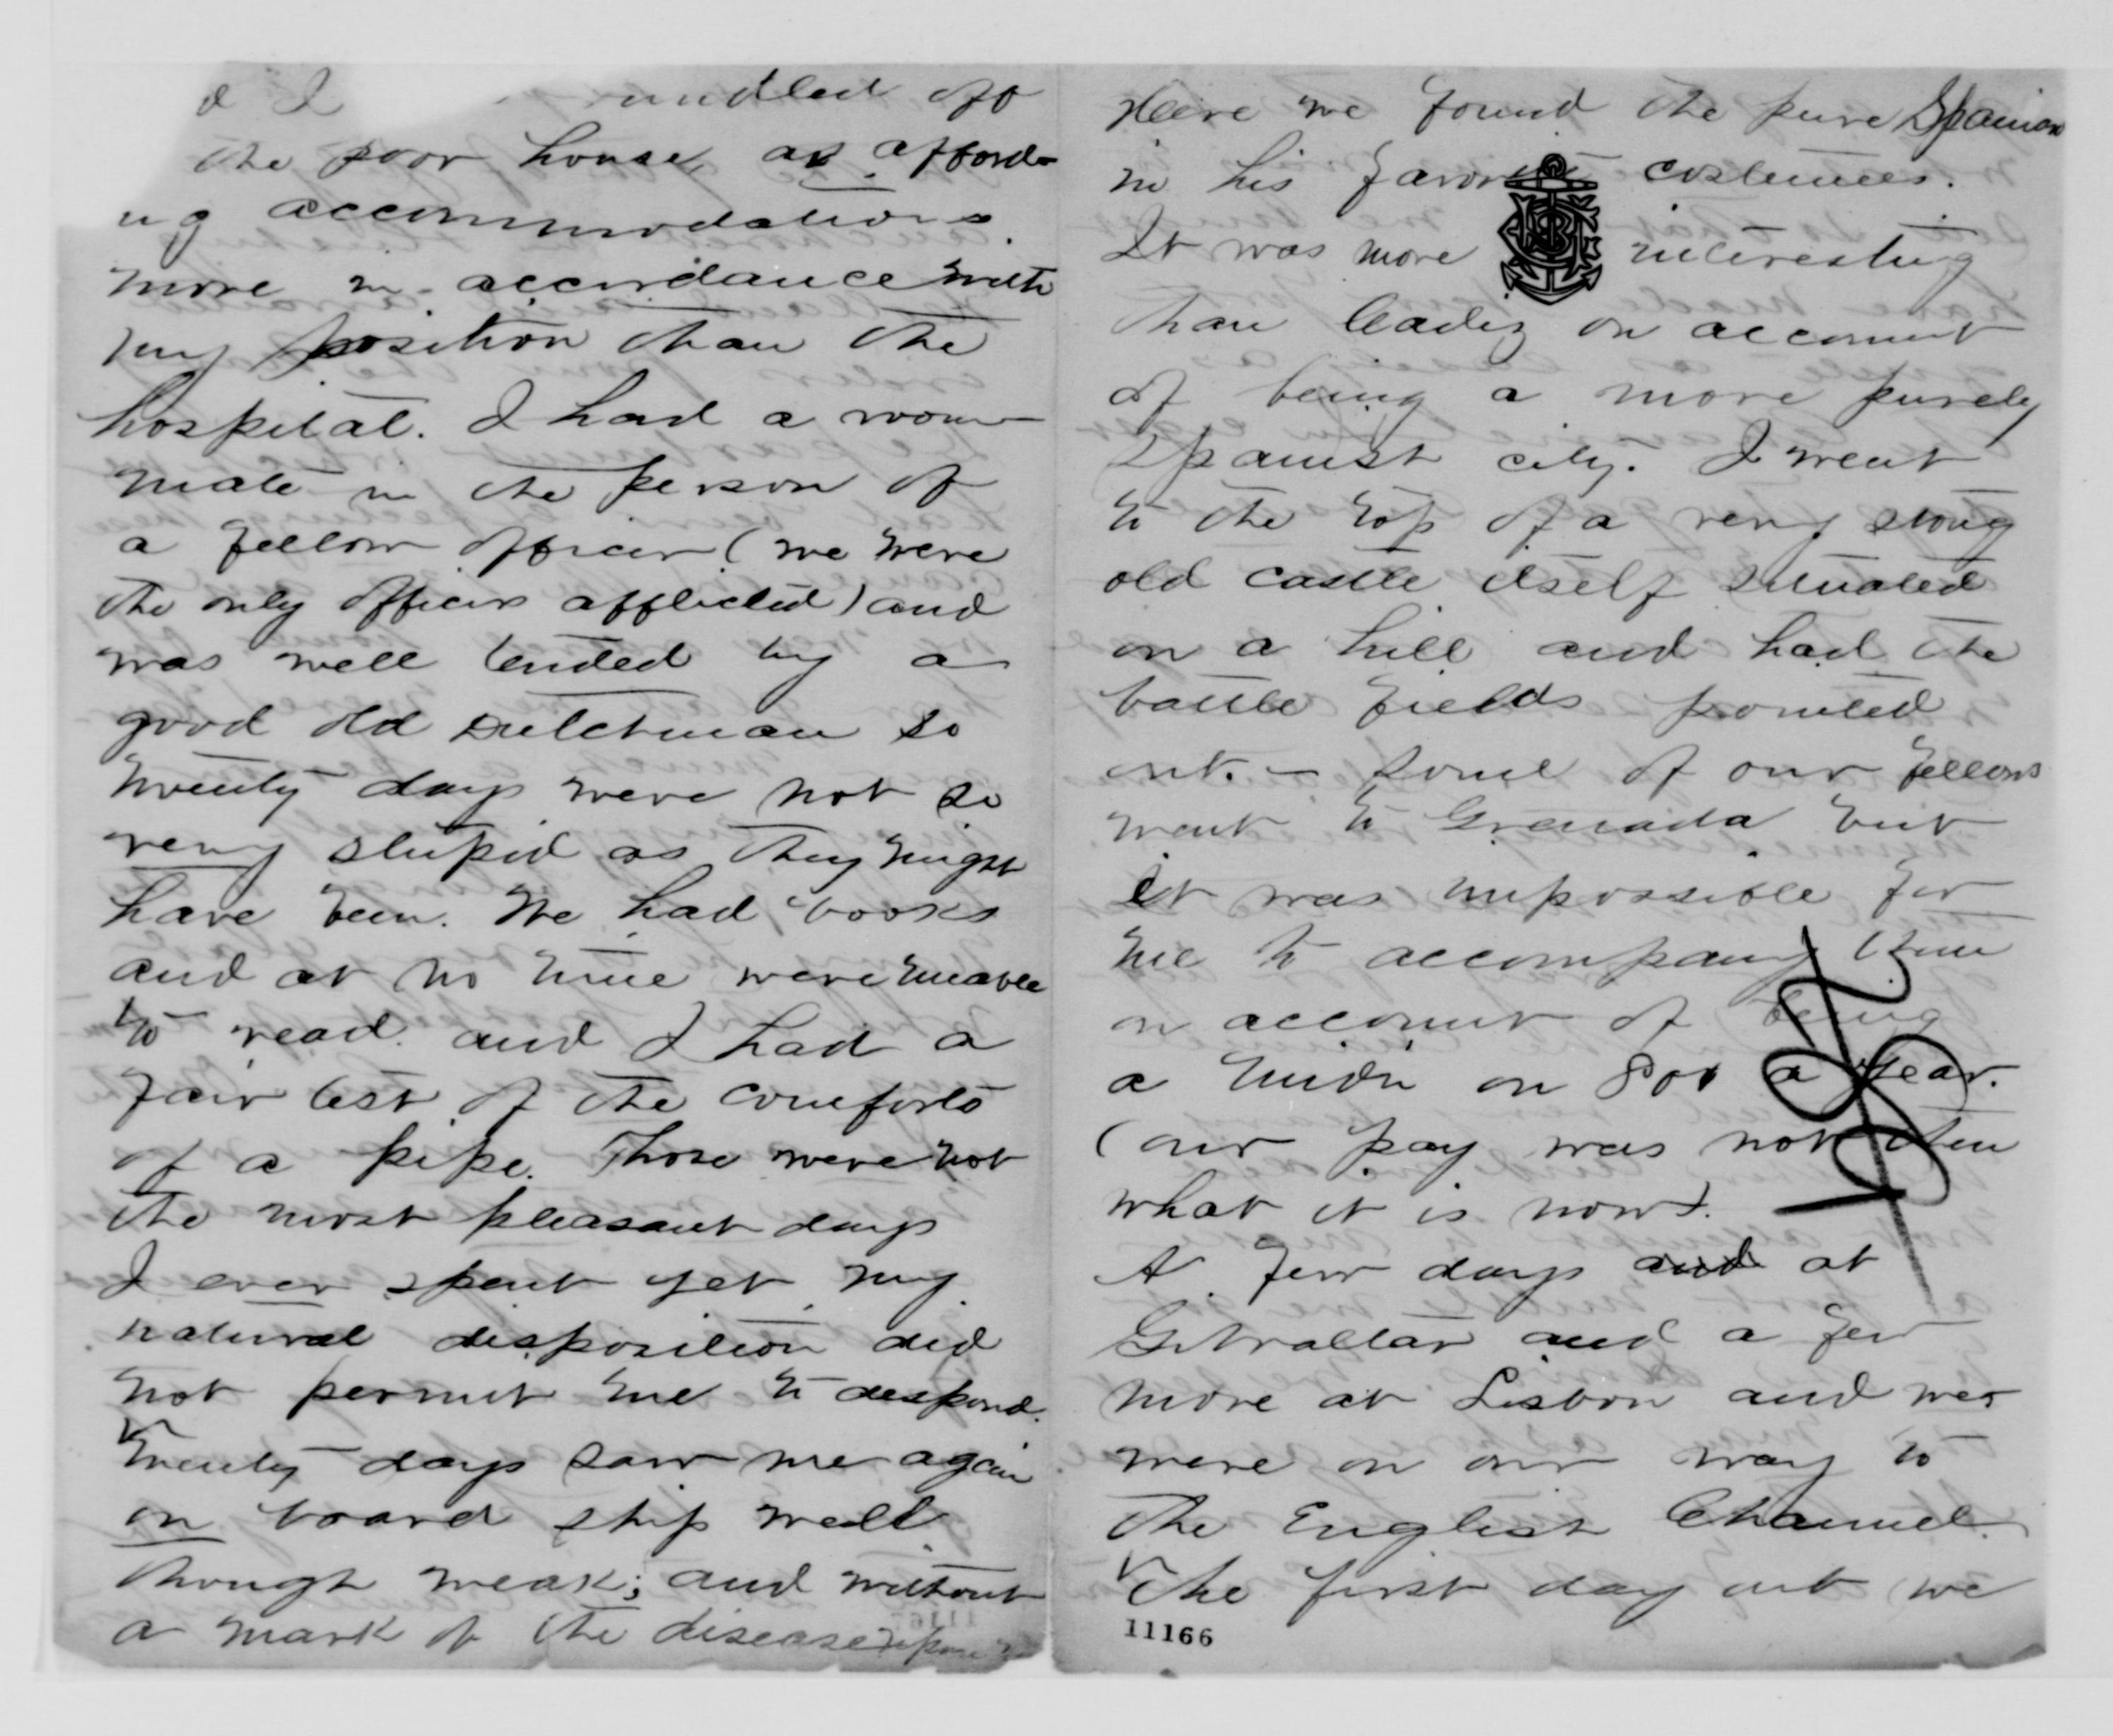 & I rundled off
the poor house, as afford-
ng accommodations
more in accordance with
my position than the
hospital. I had a room
mate in the person of
a fellow officer (we were
the only officers afflicted) and
was well tended by a
good old Dutchman so
twenty days were not so
very stupid as they might
have been. We had books
and at no time were unable
to read and I had a
fair test of the comforts
of a pipe. Those were not
the most pleasant days
I ever spent yet my
natural disposition did
not permit me to despond.
Twenty days saw me again
on board ship well
though weak; and without
a mark of the disease upon
Here we found the pure Spaniard
in his favorite costumes.
It was more interesting
than Cadiz on account
of being a more purely
Spanish city. I went
to the top of a very strong
old castle itself situated
on a hill and had the
battle fields pointed
out. – Some of our fellows
went to Grenada but
it was impossible for
me to accompany them
on account of being
a midn on 800 a year.
(our pay was not then
what it is now).
A few days and at
Gibraltar and a few
more at Lisbon and we
were on our way to
the English Channel.
The first day out we
11166